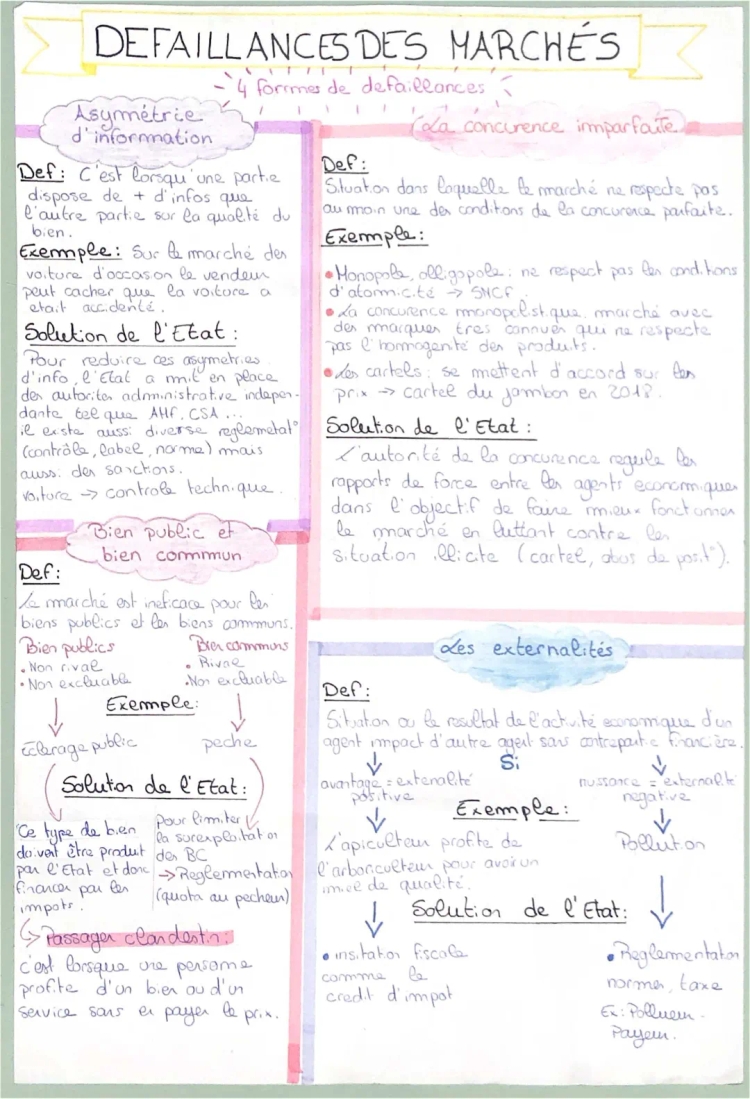 DEFAILLANCES DES MARCHÉS
4 formes de defaillances
Asymétrie
d'information
Def: C'est lorsqu'une partie
dispose de + d'infos que
l'autre partie sur la qualité du
bien.
Exemple: Sur le marché des
voiture d'occasion le vendeur
peut cacher que la voiture a
etait accidenté.
Solution de l'Etat:
Pour reduire ces asymetries
d'info, l'Etat a mit en place
des autorites administrative indepen-
dante tel que AMF, CSA ...
il existe aussi diverse reglemetat°
(contrôle, label, norme) mais
aussi des sanctions.
voiture → controle technique.
La concurence imparfaite
Def:
Situation dans laquelle le marché ne respecte pas
au moin une des conditons de la concurence parfaite.
Exemple:
• Monopole, olligopole: ne respect pas les conditions
d'atomicité → SNCF.
• La concurence monopolistique, marché avec
des marques tres connues qui ne respecte
pas l'homogenté des produits.
• Les cartels: se mettent d'accord sur les
prix → cartel du jambon en 2018.
Solution de l'Etat:
L'autorité de la concurence regule les
rapports de force entre les agents economiques
dans l'objectif de faire mieux fonctionner
le marché en luttant contre les
situation illicite (cartel, abus de posit°).
Bien public et
bien commun
Def:
Le marché est ineficace pour les
biens publics et les biens communs.
Bien publics
• Non rival
• Non excluable
Bien communs
• Rival
• Non excluable
Exemple:
Eclairage public
peche
Solution de l'Etat:
Ce type de bien
doivent être produit
par l'Etat et donc
financer par les
impots.
Pour limiter
la surexploitation
des BC
→ Reglementation
(quota au pecheur)
Passager clandestin:
c'est lorsque une personne
profite d'un bien ou d'un
service sans en payer le prix.
Les externalités
Def:
Situation ou le resultat de l'activité economique d'un
agent impact d'autre agent sans contrepartie financière.
Si
avantage = extenalité
positive
nuissance = externalité
negative
Exemple:
L'apiculteur profite de
l'arboriculteur pour avoir un
miel de qualité.
Pollution
Solution de l'Etat:
• insitation fiscale
comme le
credit d'impot
• Reglementation
normes, taxe
Ex: Pollueur -
Payeur.